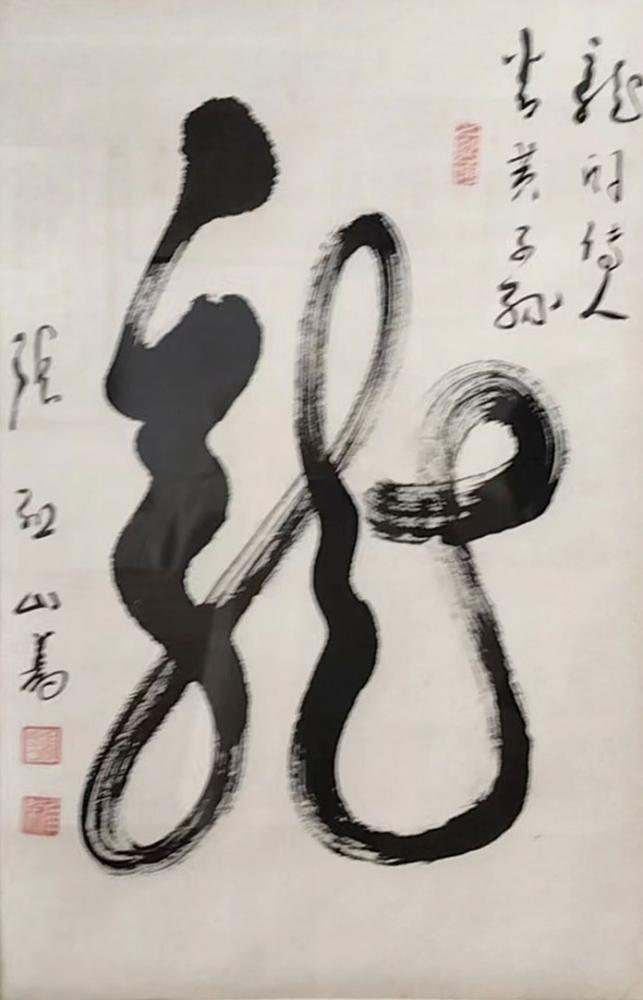 龍的傳人
炎黃子孫
龍
張 山